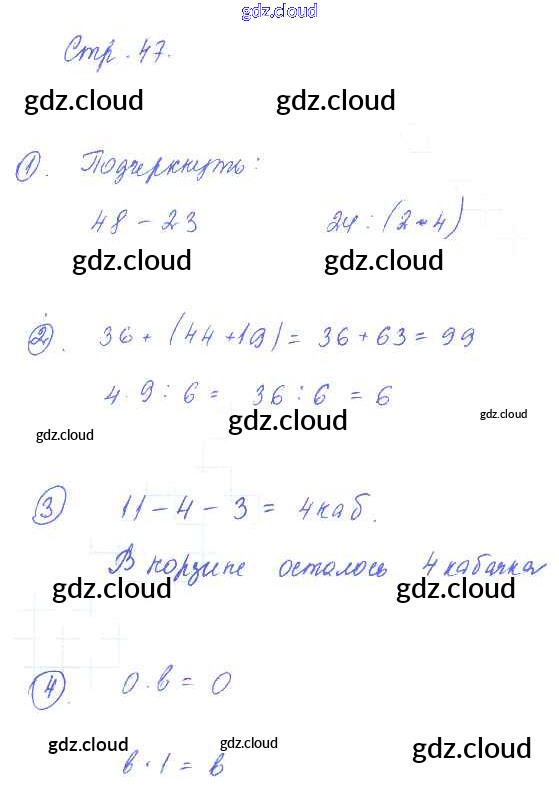 gdz.cloud
Стр. 47.
gdz.cloud gdz.cloud
1. Подчеркнуть:
48 - 23 24 : (2 · 4)
gdz.cloud gdz.cloud
2. 36 + (44 + 19) = 36 + 63 = 99
4 · 9 : 6 = 36 : 6 = 6
gdz.cloud gdz.cloud gdz.cloud
3 11 - 4 - 3 = 4 каб.
В корзине осталось 4 кабачка
gdz.cloud gdz.cloud
4. 0 · в = 0
gdz.cloud gdz.cloud gdz.cloud
в · 1 = в